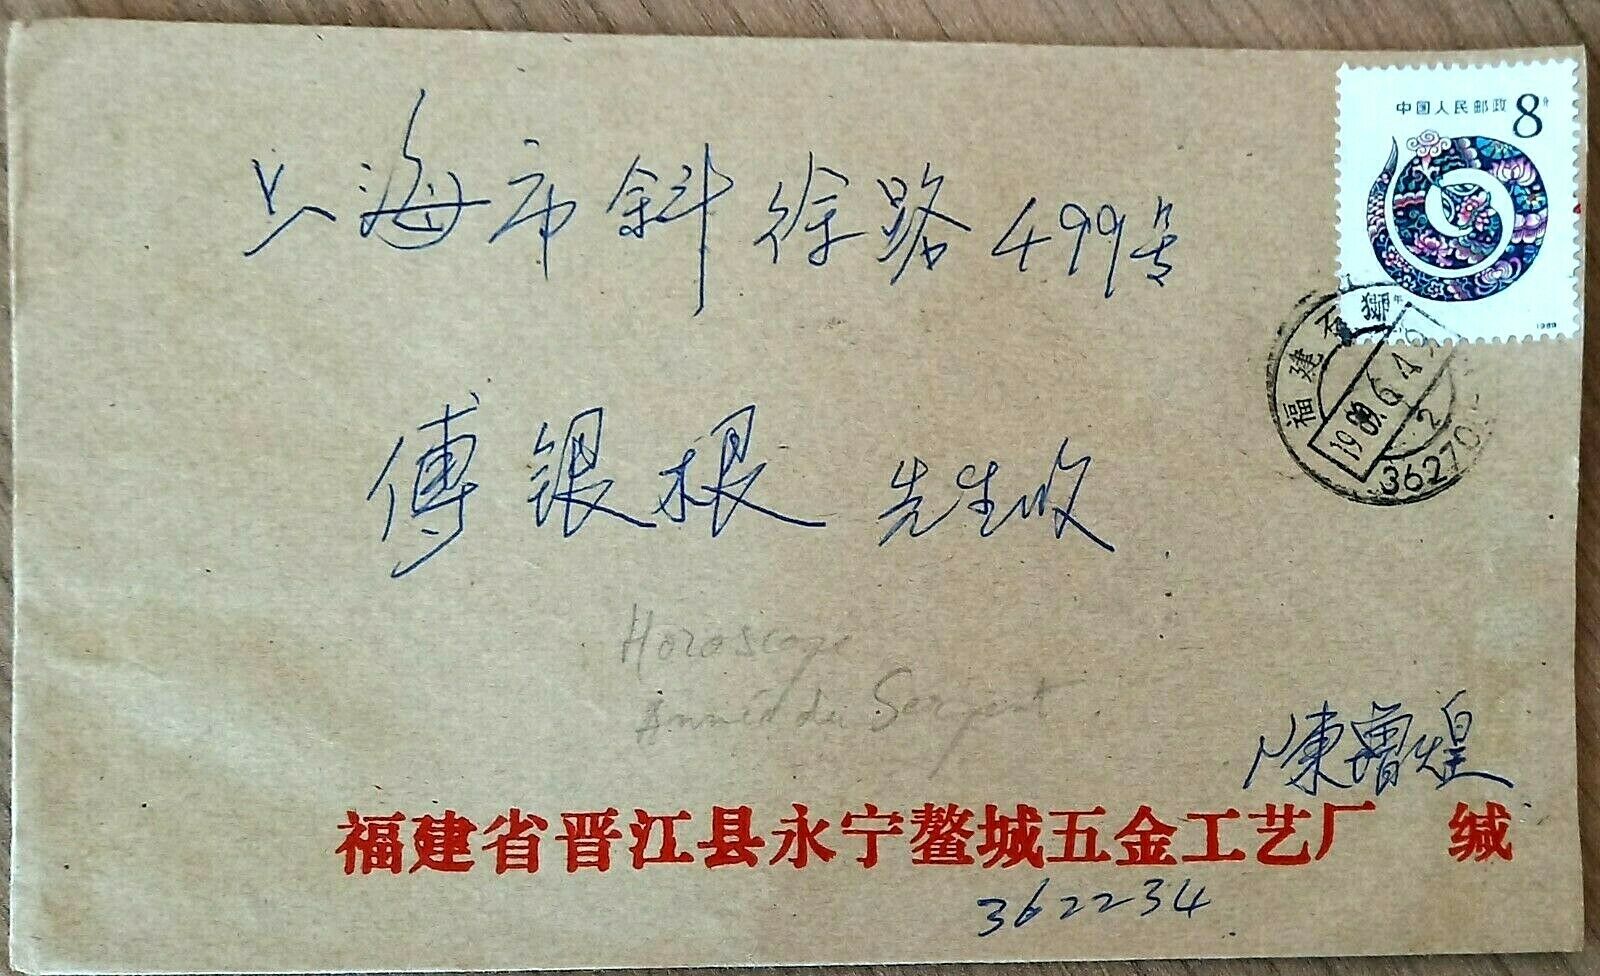 中国人民邮政 8分
1989
上海市斜徐路499号
福建石狮
1989.6.4
2
36270
傅银根 先生收
Horoscope
Année du Serpent
陳曙煌
福建省晋江县永宁鳌城五金工艺厂 缄
362234